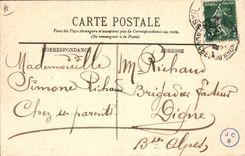 CARTE POSTALE
Tous les Pays étrangers n'acceptent pas la Correspondance au recto.
(Se renseigner à la Poste)
CORRESPONDANCE
ADRESSE
Mademoiselle
Simone Richaud
Chez ses parents
Mr Richaud
Brigadier facteur
Digne
Bses Alpes
J C
B